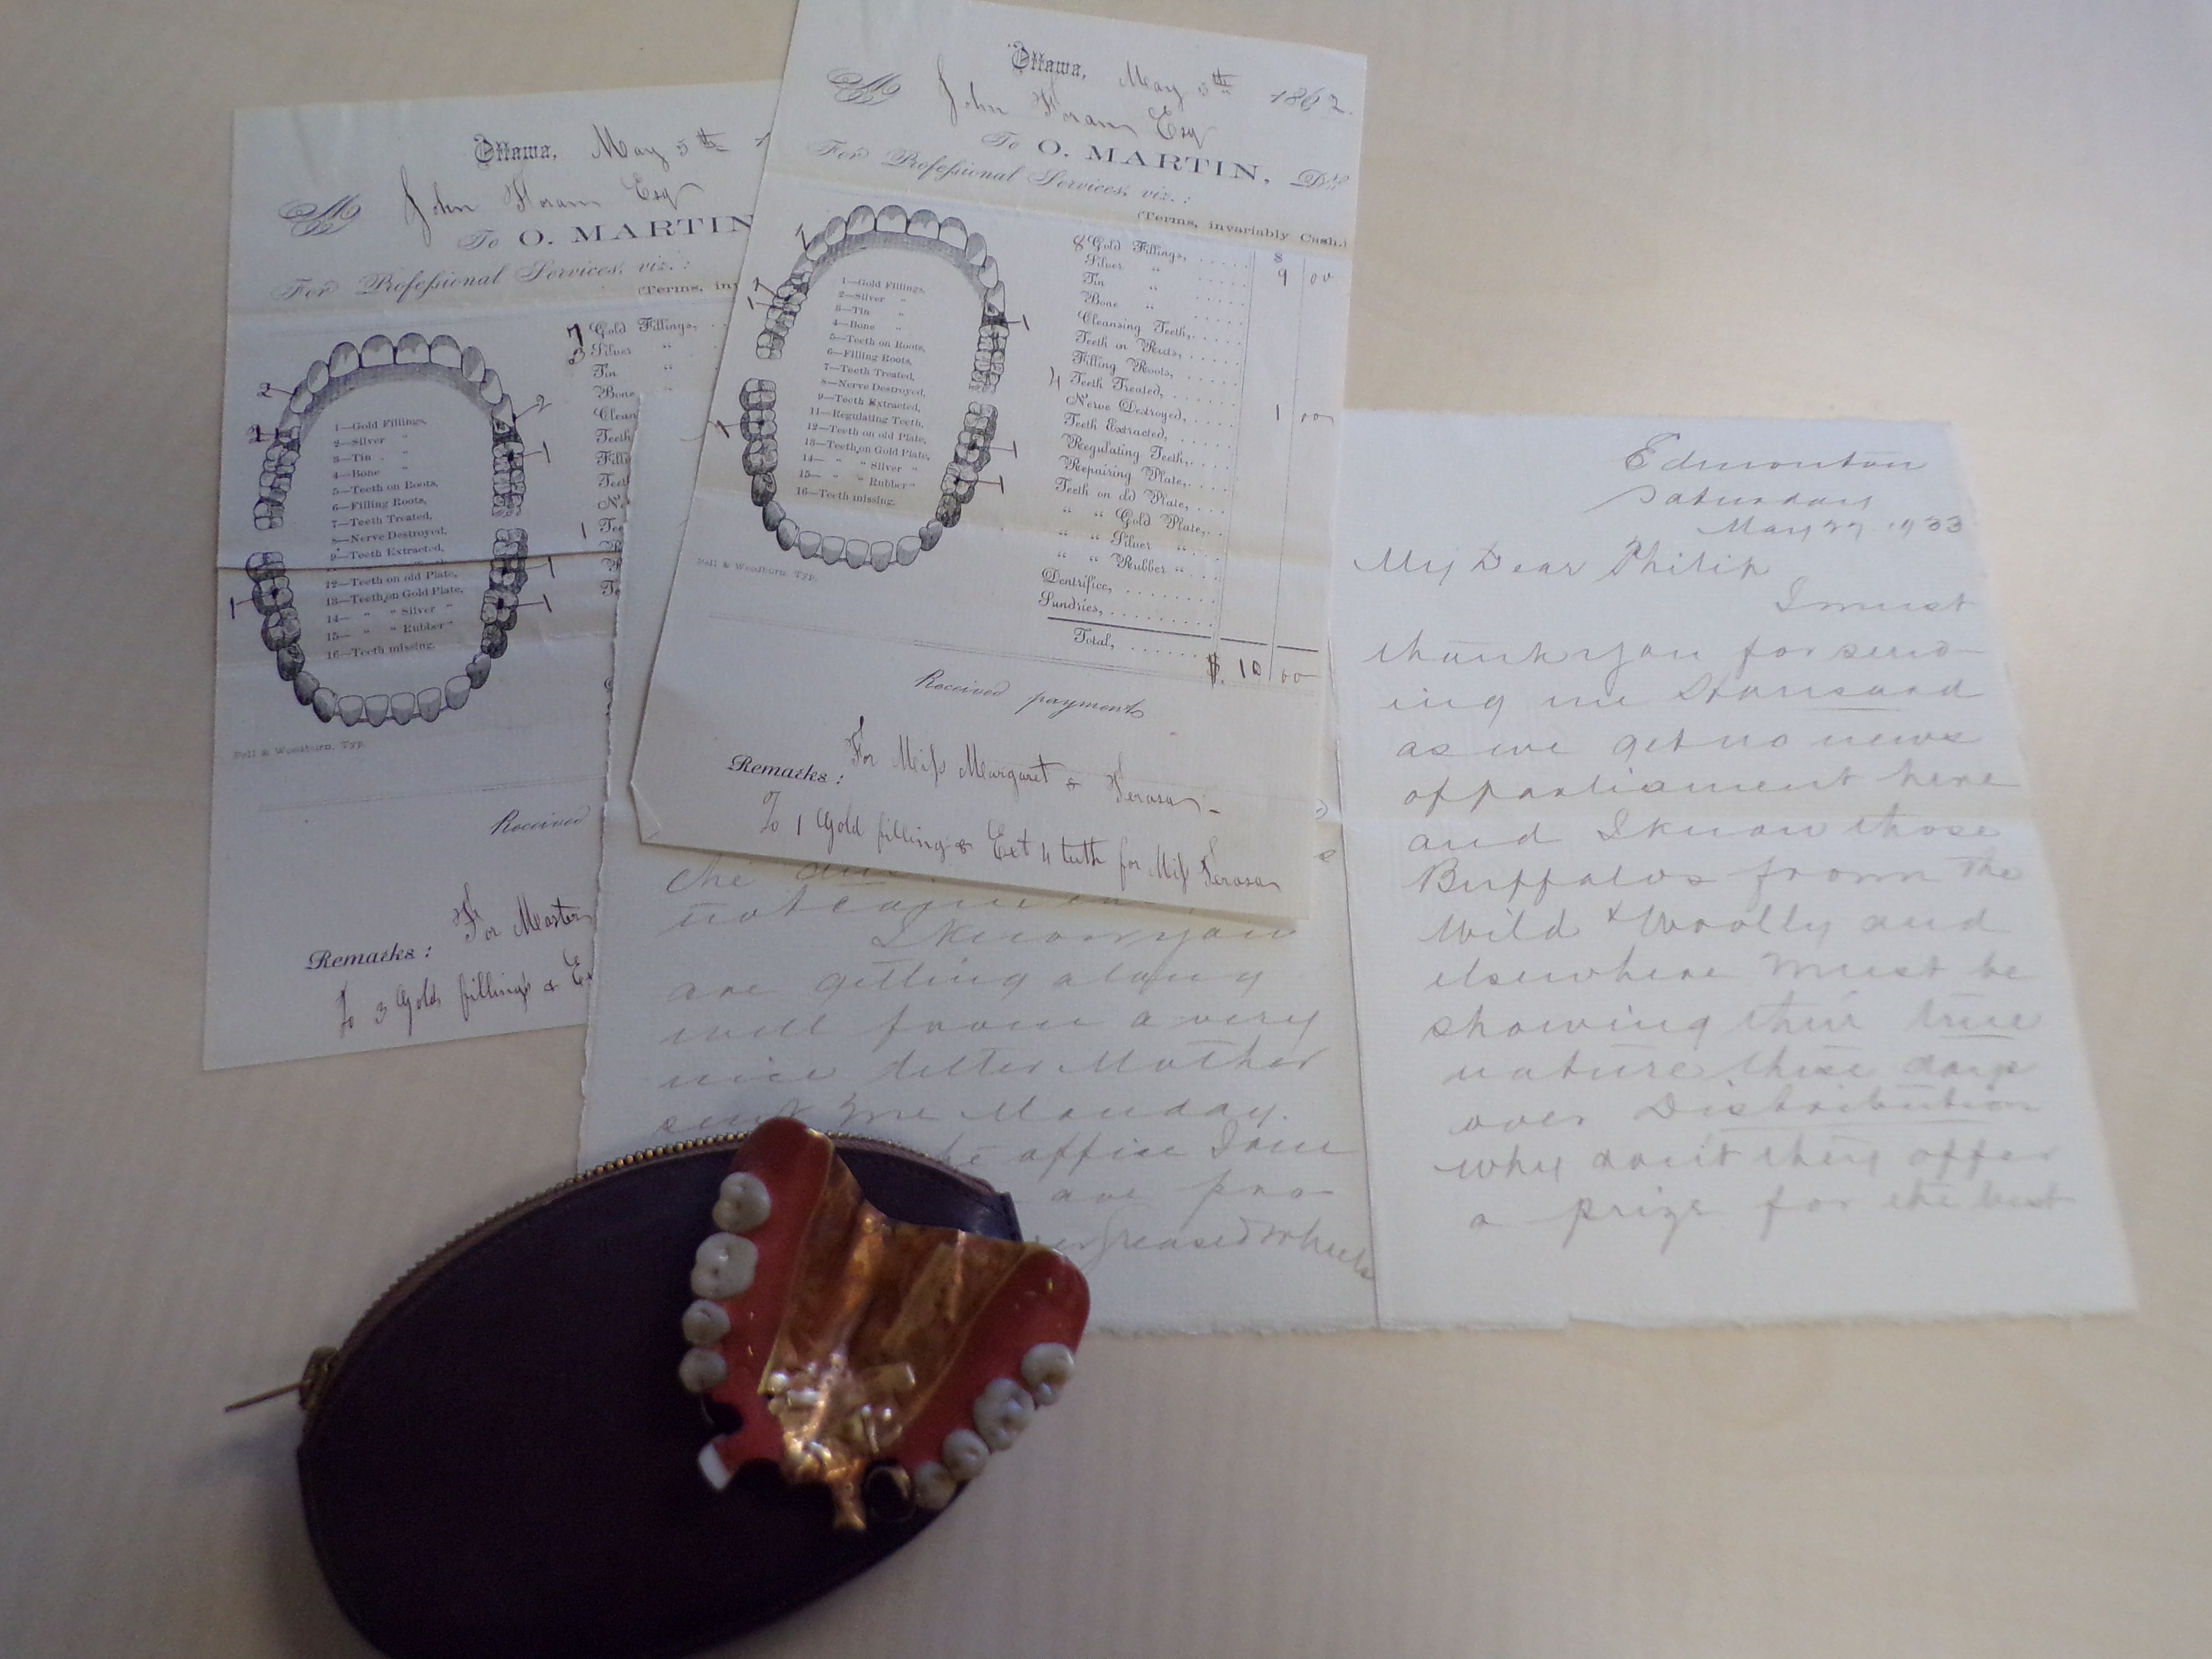 Ottawa, May 5th
M John Horan Esq
To O. MARTIN
For Professional Services, viz.:
(Terms, in
1—Gold Fillings,
2—Silver "
3—Tin "
4—Bone "
5—Teeth on Roots,
6—Filling Roots,
7—Teeth Treated,
8—Nerve Destroyed,
9—Teeth Extracted,
12—Teeth on old Plate,
13—Teeth on Gold Plate,
14— " " Silver "
15— " " Rubber "
16—Teeth missing.
7 Gold Fillings,
3 Silver "
Tin "
Bone
Clean
Teeth
Fille
Teet
Ne
1 Tee
Bell & Woodburn, Typ.
Received
Remarks: For Master
To 3 Gold fillings & Ex
Ottawa, May 5th 1862.
M John Horan Esq
To O. MARTIN, Dr.
For Professional Services, viz.:
(Terms, invariably Cash.)
1—Gold Fillings,
2—Silver "
3—Tin "
4—Bone "
5—Teeth on Roots,
6—Filling Roots,
7—Teeth Treated,
8—Nerve Destroyed,
9—Teeth Extracted,
11—Regulating Teeth,
12—Teeth on old Plate,
13—Teeth on Gold Plate,
14— " " Silver "
15— " " Rubber "
16—Teeth missing.
8 Gold Fillings, 8
Silver " 9 00
Tin "
Bone "
Cleansing Teeth,
Teeth on Roots,
Filling Roots,
4 Teeth Treated,
Nerve Destroyed, 1 00
Teeth Extracted,
Regulating Teeth,
Repairing Plate,
Teeth on old Plate,
" " Gold Plate,
" " Silver "
" " Rubber "
Dentrifice,
Sundries,
Total, $. 10 00
Bell & Woodburn, Typ.
Received payment
Remarks: For Miss Margaret & Teresa -
To 1 Gold filling & Ext 4 teeth for Miss Teresa
I know you
are getting along
well from a very
nice letter Mother
sent me Monday.
office I am
are pro-
greased wheels
Edmonton
Saturday
May 27 1933
My Dear Philip
I must
thank you for send-
ing me Hansard
as we get no news
of parliament here
and I know those
Buffalos from the
Wild & Woolly and
elsewhere must be
showing their true
nature these days
over Distribution
why don't they offer
a prize for the best